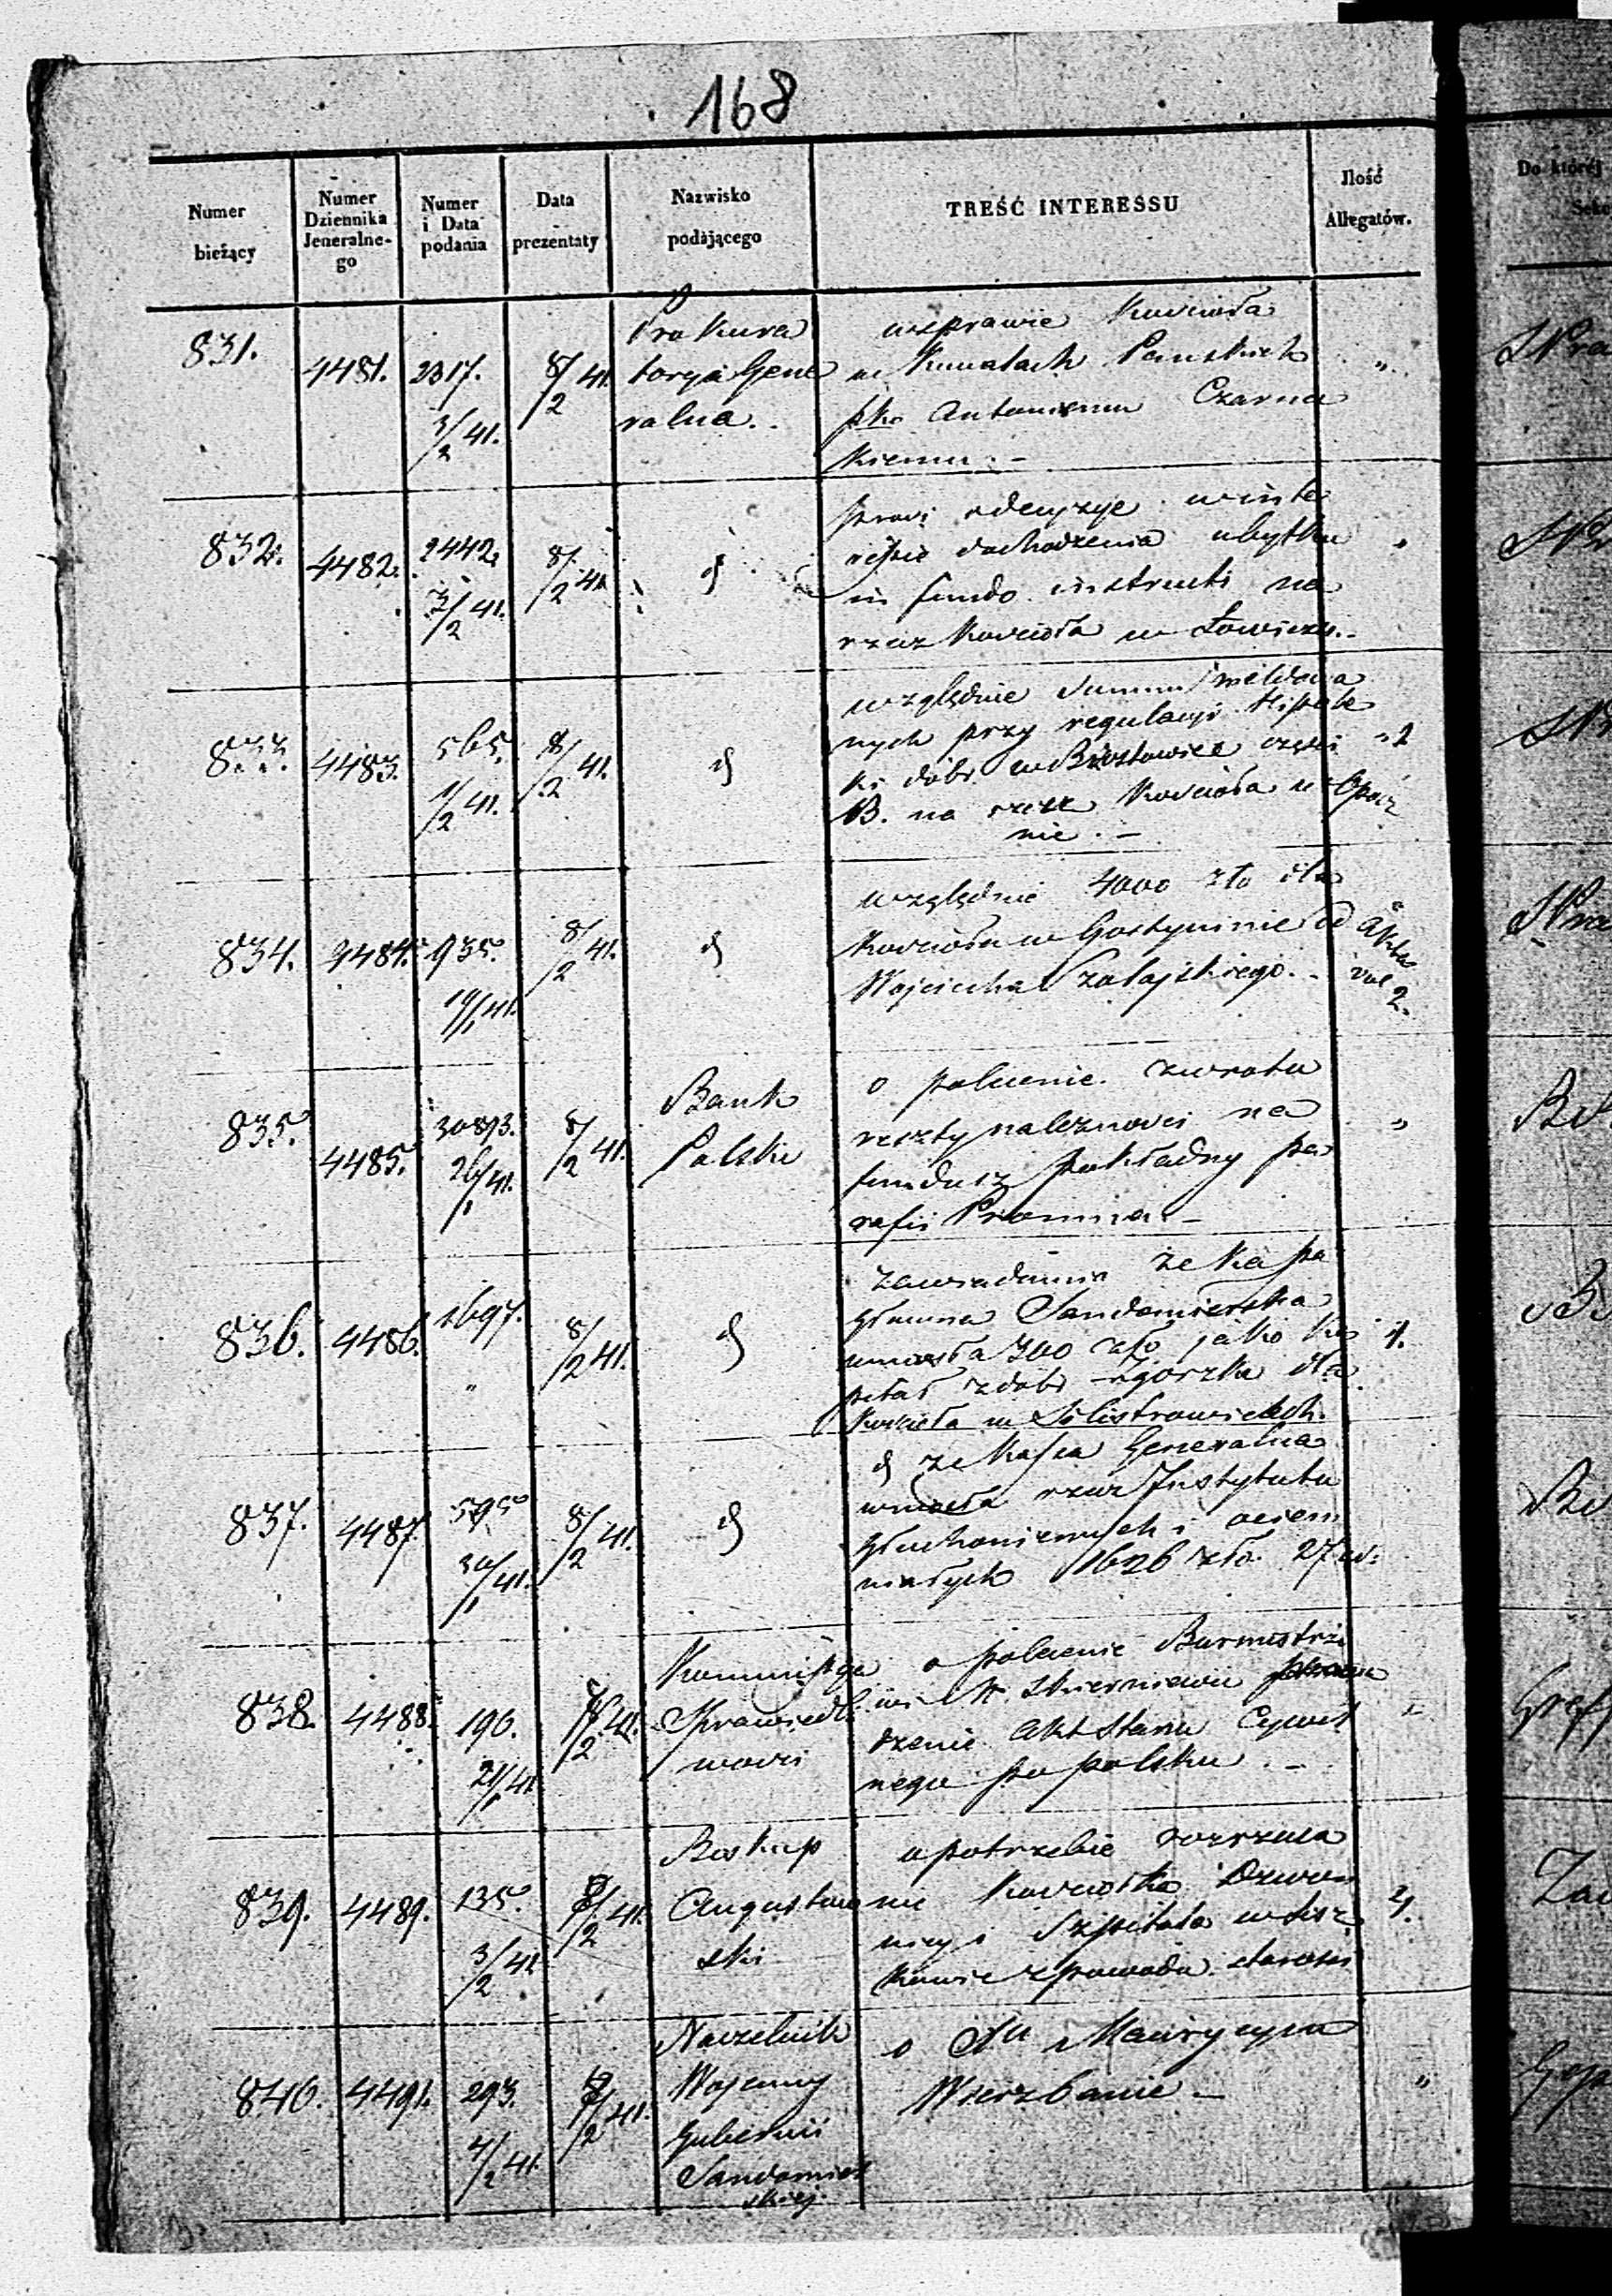 168
Numer bieżący
Numer Dziennika Jeneralne-go
Numer i Data podania
Data prezentaty
Nazwisko podającego
TREŚĆ INTERESSU
Ilość Allegatów.
Do której
831. 4481. 2317. 3/2 41. 8/2 41.
Prokura
torya Gene
ralna.
w sprawie Kościoła
w Kunatach Pańskich
pko Antoniemu Czarnec
kiemu. -
832. 4482. 2442. 3/2 41. 8/2 41.
prosi o decyzye w inte
ressie dochodzenia ubytku
in fundo instructi na
rzecz Kościoła w Łowiczu. -
833. 4483. 565. 1/2 41. 8/2 41.
względnie Summ meldowa
nych przy regulacyi Hipote
ki dóbr w Brzostowice części
B. na rzecz Kościoła w Opocz
nie. -
2
834. 4484. 935. 19/1 41. 8/2 41.
względnie 4000 złp dla
Kościoła w Gostyninie od
Wojciecha Szałajskiego. -
akta
vol
2.
835. 4485. 30893. 26/1 41. 8/2 41.
Bank
Polski
o polecenie zwrotu
reszty należności na
fundusz pokładny pa
rafii Promna. -
836. 4486. 1697. " 8/2 41.
zawiadamia że Kassa
główna Sandomierska
wniosła 300 złp jako ka
pitał z dóbr Zgórzka dla
Kościoła w Sulistrowicach.
1.
837. 4487 595 30/1 41. 8/2 41.
że Kassa Generalna
wniosła rzecz Instytutu
głuchoniemych i ociem
niałych 1626 złp. 27
838. 4488. 190. 21/1 41. 8/2 41.
Kommissya
Sprawiedli
wości
o polecenie Burmistrzo
wi M. Skierniewic
dzenie Akt Stanu Cywil
nego po polsku. -
839. 4489. 135. 3/2 41. 8/2 41.
Biskup
Augustow
ski
o potrzebie rozrzuce
nia Kościołka Dzwon
nicy i Szpitala w Lisz
kowie z powodu starości
2.
840. 4491. 293. 4/2 41. 8/2 41.
Naczelnik
Wojenny
Gubernii
Sandomier
skiej
o Maurycym
Wierzbanie -
"